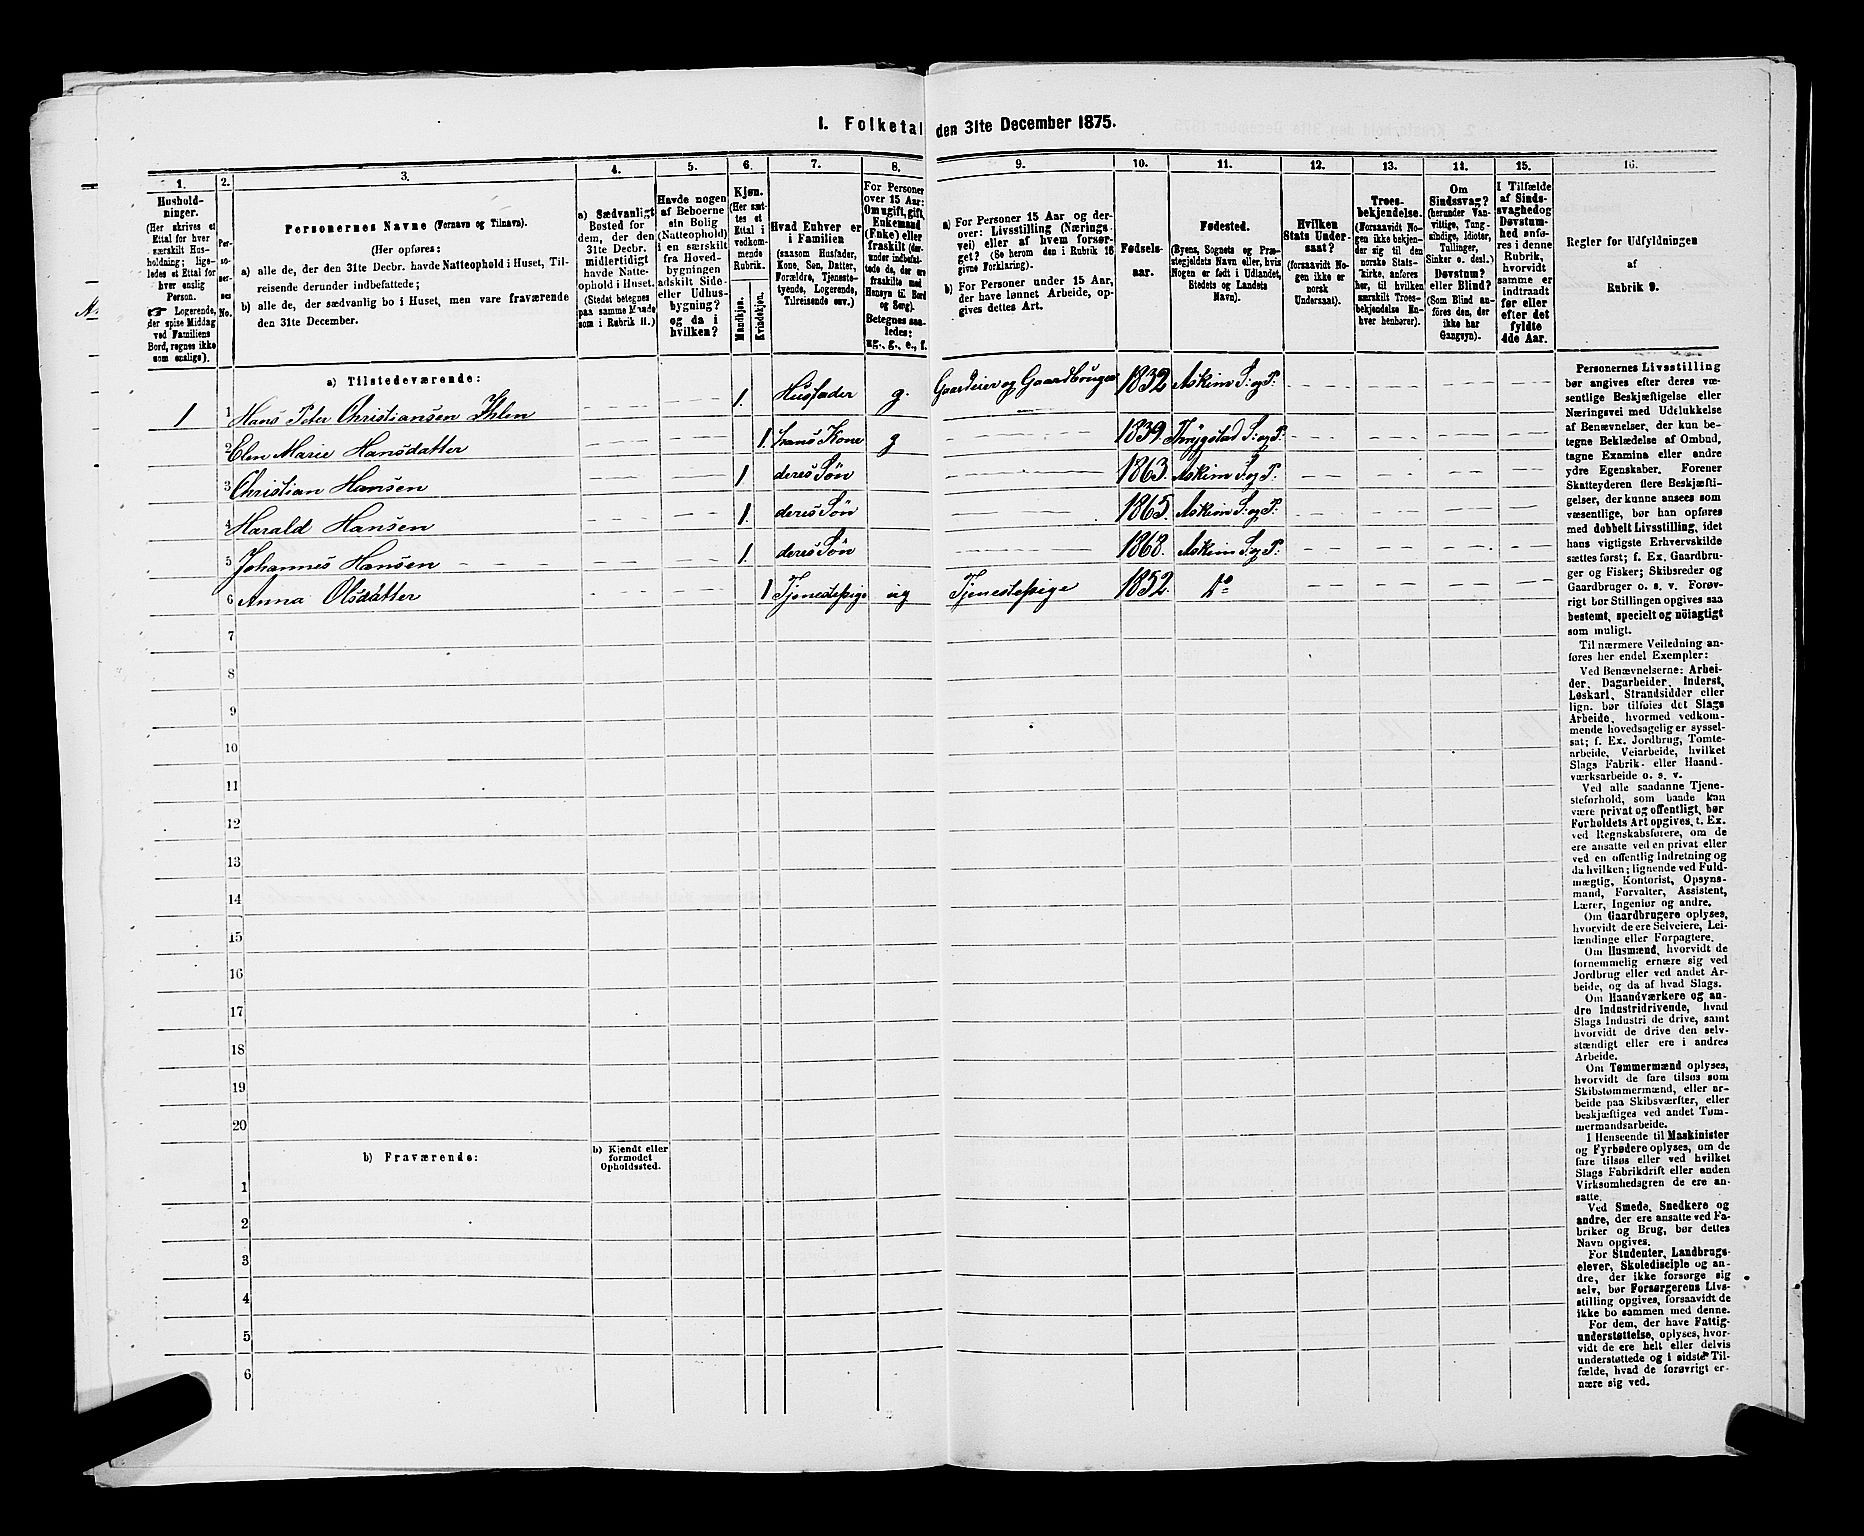 1. Folketal den 31te December 1875.
1.
Hushold-
ninger.
(Her skrives et
Ettal for hver
særskilt Hus-
holdning; lige-
ledes et Ettal for
hver enslig
Person.
☞ Logerende,
der spise Middag
ved Familiens
Bord, regnes ikke
som enslige).
2.
Per-
so-
ner-
nes
No.
3.
Personernes Navne (Fornavn og Tilnavn).
(Her opføres:
a) alle de, der den 31te Decbr. havde Natteophold i Huset, Til-
reisende derunder indbefattede;
b) alle de, der sædvanlig bo i Huset, men vare fraværende
den 31te December.
4.
a) Sædvanligt
Bosted for
dem, der den
31te Decbr.
midlertidigt
havde Natte-
ophold i Huset.
(Stedet betegnes
paa samme Maade
som i Rubrik 11.)
5.
Havde nogen
af Beboerne
sin Bolig
(Natteophold)
i en særskilt
fra Hoved-
bygningen
adskilt Side-
eller Udhus-
bygning?
og da i
hvilken?
6.
Kjøn.
(Her sæt-
tes et
Ettal i
vedkom-
mende
Rubrik.
Mandkjøn.
Kvindekjøn.
7.
Hvad Enhver er
i Familien
(saasom Husfader,
Kone, Søn, Datter,
Forældre, Tjeneste-
tyende, Logerende,
Tilreisende osv.)
8.
For Personer
over 15 Aar:
Om ugift, gift,
Enkemand
(Enke) eller
fraskilt (der-
under indbefat-
tede de, der ere
fraskilte med
Hensyn til Bord
og Seng).
Betegnes saa-
ledes:
ug., g., e., f.
9.
a) For Personer 15 Aar og der-
over: Livsstilling (Nærings-
vei) eller af hvem forsør-
get? (Se herom den i Rubrik 16
givne Forklaring).
b) For Personer under 15 Aar,
der have lønnet Arbeide, op-
gives dettes Art.
10.
Fødsels-
aar.
11.
Fødested.
(Byens, Sognets og Præ-
stegjeldets Navn eller, hvis
Nogen er født i Udlandet,
Stedets og Landets
Navn).
12.
Hvilken
Stats Under-
saat?
(forsaavidt No-
gen ikke er
norsk
Undersaat).
13.
Troes-
bekjendelse.
(Forsaavidt No-
gen ikke bekjen-
der sig til den
norske Stats-
kirke, anføres
her, til hvilken
særskilt Troes-
bekjendelse En-
hver henhører).
14.
Om
Sindssvag?
(herunder Van-
vittige, Tung-
sindige, Idioter,
Tullinger,
Sinker o. desl.)
Døvstum?
eller Blind?
(Som Blind an-
føres den, der
ikke har
Gangsyn).
15.
I Tilfælde
af Sinds-
svaghed og
Døvstum-
hed anfø-
res i denne
Rubrik,
hvorvidt
samme er
indtraadt
før eller
efter det
fyldte
4de Aar.
16.
Regler for Udfyldningen
af
Rubrik 9.
a) Tilstedeværende:
1 1 Hans Peter Christiansen Ihlen — — — 1. Husfader g. Gaardeier og Gaardbruger 1832 Askim S: og P: — — — —
2 Elen Marie Hansdatter — — — 1. hans Kone g — — 1839. Thrygstad S: og P: — — — —
3 Christian Hansen — — — 1 deres Søn — — 1863. Askim S: og P: — — — —
4 Harald Hansen — — — 1. deres Søn — — 1865. Askim S: og P: — — — —
5 Johannes Hansen — — — 1. deres Søn — — 1868. Askim S: og P: — — — —
6 Anna Olsdatter — — — 1 Tjenestepige ug Tjenestepige 1852. do — — — —
7
8
9
10
11
12
13
14
15
16
17
18
19
20
b) Fraværende:
b) Kjendt eller
formodet
Opholdssted.
1
2
3
4
5
6
Personernes Livsstilling
bør angives efter deres væ-
sentlige Beskjæftigelse eller
Næringsvei med Udelukkelse
af Benævnelser, der kun be-
tegne Beklædelse af Ombud,
tagne Examina eller andre
ydre Egenskaber. Forener
Skatteyderen flere Beskjæfti-
gelser, der kunne ansees som
væsentlige, bør han opføres
med dobbelt Livsstilling, idet
hans vigtigste Erhvervskilde
sættes først; f. Ex. Gaardbru-
ger og Fisker; Skibsreder og
Gaardbruger o. s. v. Forøv-
rigt bør Stillingen opgives saa
bestemt, specielt og nöiagtigt
som muligt.
Til nærmere Veiledning an-
føres her endel Exempler:
Ved Benævnelserne: Arbei-
der, Dagarbeider, Inderst,
Løskarl, Strandsidder eller
lign. bør tilføies det Slags
Arbeide, hvormed vedkom-
mende hovedsagelig er syssel-
sat; f. Ex. Jordbrug, Tomte-
arbeide, Veiarbeide, hvilket
Slags Fabrik- eller Haand-
værksarbeide o. s. v.
Ved alle saadanne Tjene-
steforhold, som baade kan
være privat og offentligt, bør
Forholdets Art opgives, t. Ex.
ved Regnskabsførere, om de
ere ansatte ved en privat eller
ved en offentlig Indretning og
da hvilken; lignende ved Fuld-
mægtig, Kontorist, Opsyns-
mand, Forvalter, Assistent,
Lærer, Ingeniør og andre.
Om Gaardbrugere oplyses,
hvorvidt de ere Selveiere, Lei-
lændinge eller Forpagtere.
Om Husmænd, hvorvidt de
fornemmelig ernære sig ved
Jordbrug eller ved andet Ar-
beide, og da af hvad Slags.
Om Haandværkere og an-
dre Industridrivende, hvad
Slags Industri de drive, samt
hvorvidt de drive den selv-
stændigt eller ere i andres
Arbeide.
Om Tømmermænd oplyses,
hvorvidt de fare tilsøs som
Skibstømmermænd, eller ar-
beide paa Skibsværfter, eller
beskjæftiges ved andet Tøm-
mermandsarbeide.
I Henseende til Maskinister
og Fyrbødere oplyses, om de
fare tilsøs eller ved hvilket
Slags Fabrikdrift eller anden
Virksomhedsgren de ere an-
satte.
Ved Smede, Snedkere og
andre, der ere ansatte ved Fa-
briker og Brug, bør dettes
Navn opgives.
For Studenter, Landbrugs-
elever, Skoledisciple og an-
dre, der ikke forsørge sig
selv, bør Forsørgerens Livs-
stilling opgives, forsaavidt de
ikke bo sammen med denne.
For dem, der have Fattig-
understøttelse, oplyses, hvor-
vidt de ere helt eller delvis
understøttede og i sidste Til-
fælde, hvad de forøvrigt er-
nære sig ved.